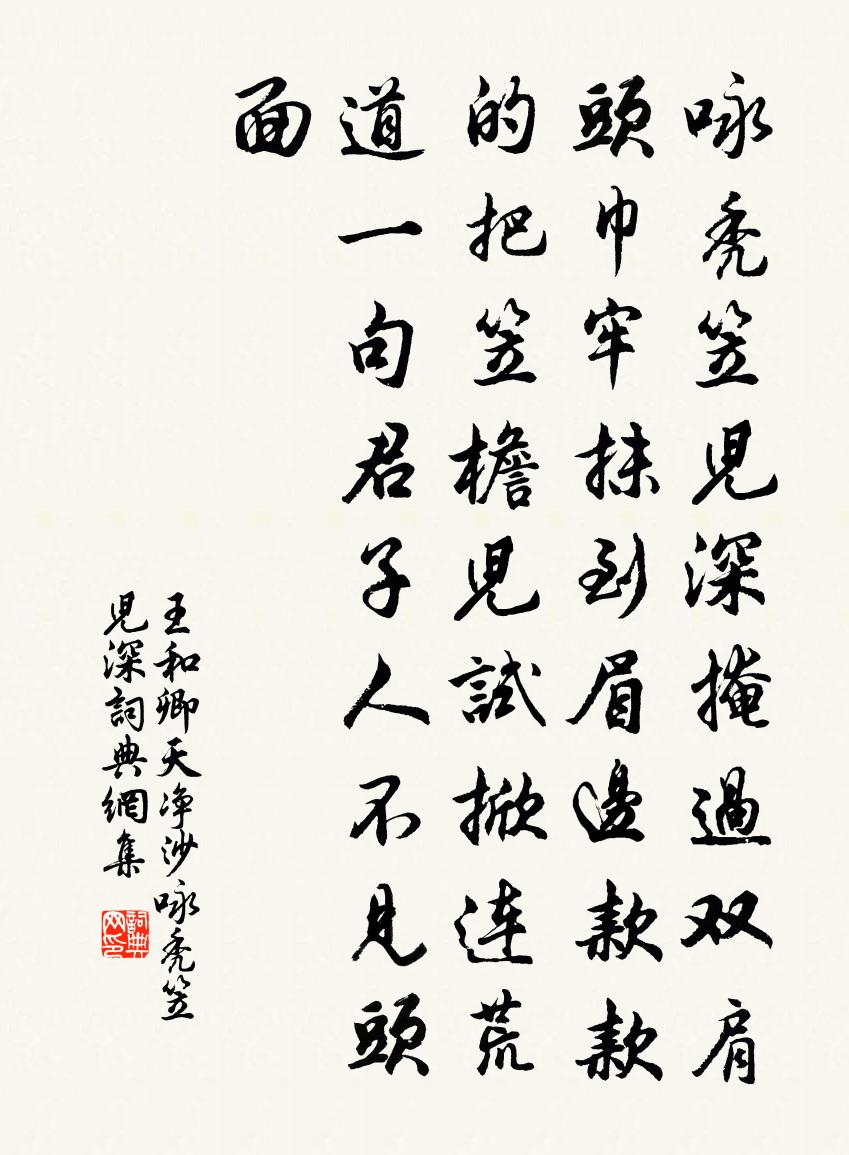 咏禿笠児深掩過双肩
頭巾牢抹到眉邊款款
的把笠檐児試掀連荒
道一句君子人不見頭
面
王和卿天净沙咏禿笠
児深詞典網集
詞典网印